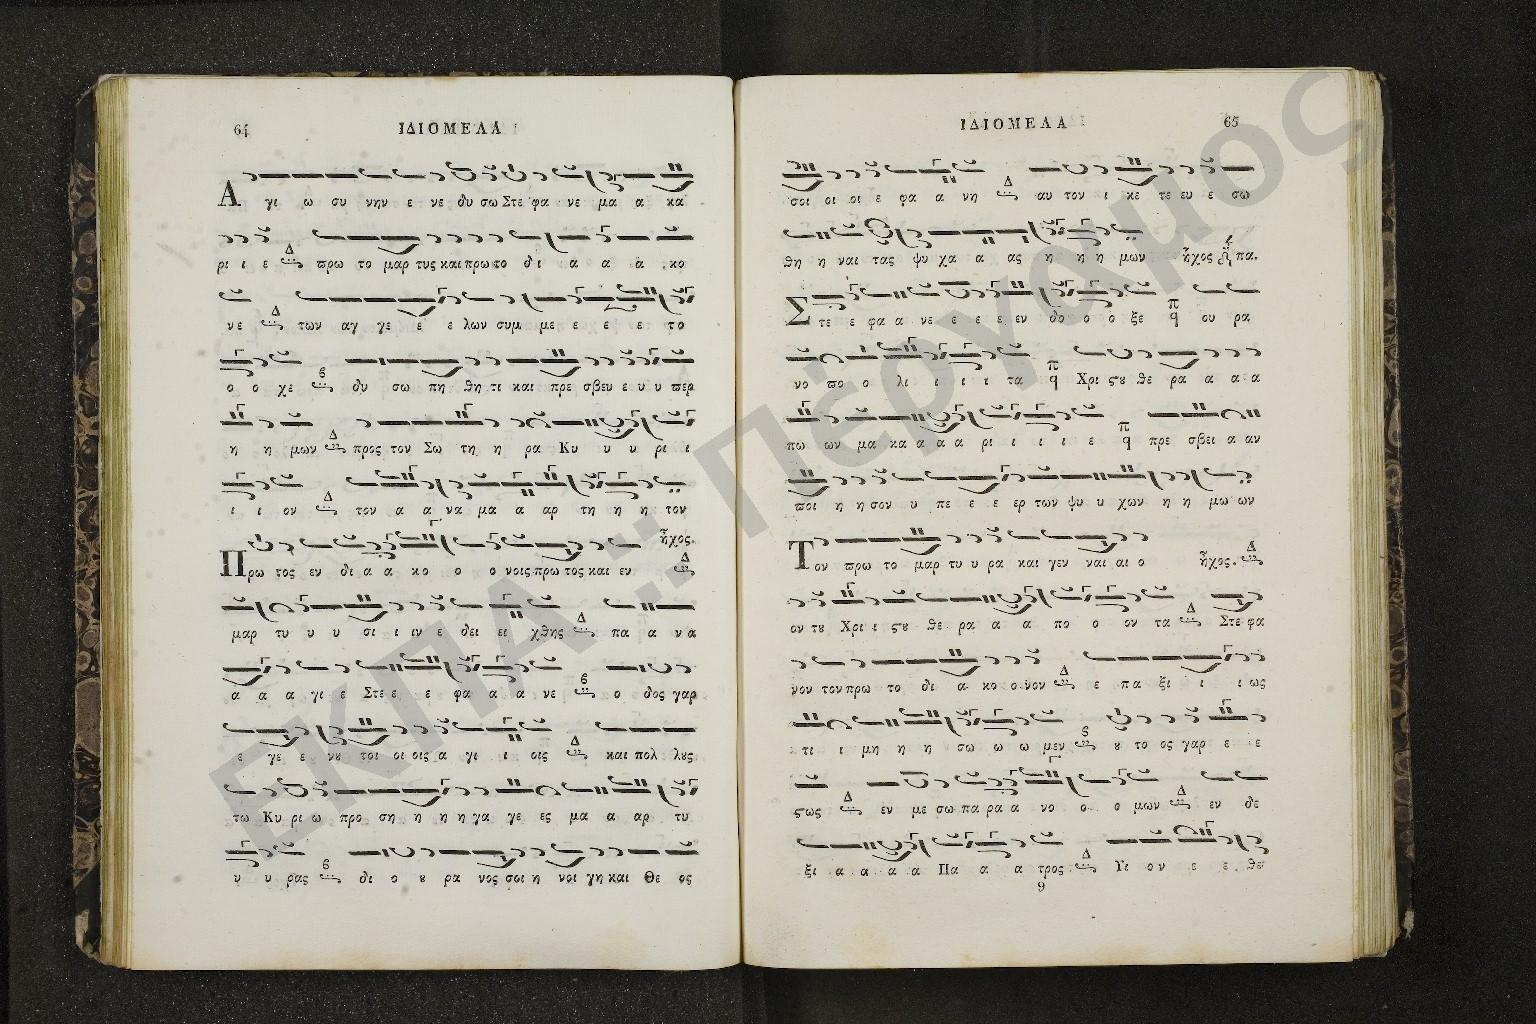 64 ΙΔΙΟΜΕΛΑ
Α γι ω συ νην ε νε δυ σω Στε φα νε μα α κα
ρι ι ε πρω το μαρ τυς και πρω το δι α α α κο
νε των αγ γε ε ε λων συμ με ε ε ε το
ο ο χε δυ σω πη θη τι και πρε σβευ ε υ υ περ
η η μων προς τον Σω τη η ρα Κυ υ υ ρι ι
ι ι ον τον α α να μα α αρ τη η η τον
ἦχος
Πρω τος εν δι α α κο ο ο νοις πρω τος και εν
μαρ τυ υ υ σι ι ιν ε δει ει χθης πα α να
α α α γι ε Στε ε ε φα α α νε ο δος γαρ
ε γε ε νȣ τοι οι οις α γι ι οις και πολ λȣς
τω Κυ ρι ω προ ση η η η γα γε ες μα α αρ τυ
υ υ ρας δι ο ȣ ρα νος σοι η νοι γη και Θε ος
ΙΔΙΟΜΕΛΑ 65
σοι οι οι ε φα α νη αυ τον ι κε τευ ε σω
θη η ναι τας ψυ χα α ας η η η μων ἦχος πα.
Στε ε φα α νε ε ε ε εν δο ο ο ξε ου ρα
νο πο ο λι ι ι ι τα Χρι ϛου θε ρα α α α
πω ων μα κα α α α ρι ι ι ι ε πρε σβει α αν
ποι η η σον υ πε ε ε ερ των ψυ υ χων η η μω ων
Τον πρω το μαρ τυ υ ρα και γεν ναι αι ο ἦχος.
ον τȣ Χρι ι ϛου θε ρα α α πο ο ον τα Στε φα
νον τον πρω το δι α κο ο νον ε πα ξι ι ι ως
τι ι μη η η σω ω ω μεν ȣ το ος γαρ ε ε
ϛως εν με σω πα ρα α νο ο ο μων εν δε
ξι α α α α Πα α α τρος Υι ον ε ε θε
9
ΕΚΠΑ :: Πέργαμος